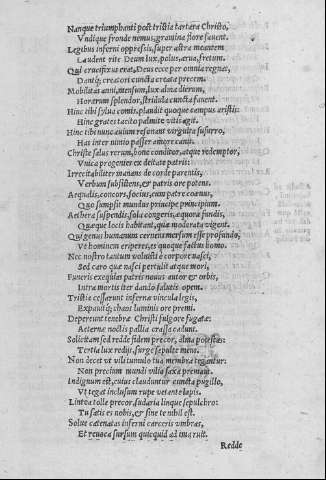 Nanque triumphanti post tristia tartara Christo,
Vndique fronde nemus, gramina flore fauent.
Legibus inferni oppressis, super astra meantem
Laudent rite Deum lux, polus, arua, fretum.
Qui crucifixus erat, Deus ecce per omnia regnat,
Dantque creatori cuncta creata precem.
Mobilitas anni, mensium, lux alma dierum,
Horarum splendor, stridula cuncta fauent.
Hinc tibi sylua comis, plandit quoque campus aristis:
Hinc grates tacito palmite vitis agit.
Hinc tibi nunc auium resonant virgulta susurro,
Has inter minio passer amore canit.
Christe salus rerum, bone conditor, atque redemptor,
Vnica progenies ex deitate patris:
Irrecitabiliter manans de corde parentis,
Verbum subsistens, & patris ore potens.
Aequalis, concors, socius, cum patre coaeuus,
Quo sumpsit mundus principe principium.
Aethera suspendis, sola congeris, aequora fundis,
Quaeque locis habitant, quae moderata vigent.
Qui genus humanum cernens mersum esse profundo,
Vt hominem eriperes, es quoque factus homo.
Nec nostro tantum voluisti è corpore nasci,
Sed caro quae nasci pertulit atque mori,
Funeris exequias pateris vitae autor & orbis,
Intra mortis iter dando salutis opem.
Tristia cesserunt infernae vincula legis,
Expauitque chaos luminis ore premi.
Depereunt tenebrae Christi fulgore fugatae:
Aeternae noctis pallia crassa cadunt.
Solicitam sed redde fidem precor, alma potestas:
Tertia lux redijt, surge sepulte meus.
Non decet vt vili tumulo tua membra tegantur:
Non precium mundi vilia saxa premant.
Indignum est, cuius clauduntur cuncta pugillo,
Vt tegat inclusum rupe vetante lapis.
Lintea tolle precor, sudaria linque sepulchro:
Tu satis es nobis, & sine te nihil est.
Solue catenatas inferni carceris vmbras,
Et reuoca sursum quicquid ad ima ruit.
Redde